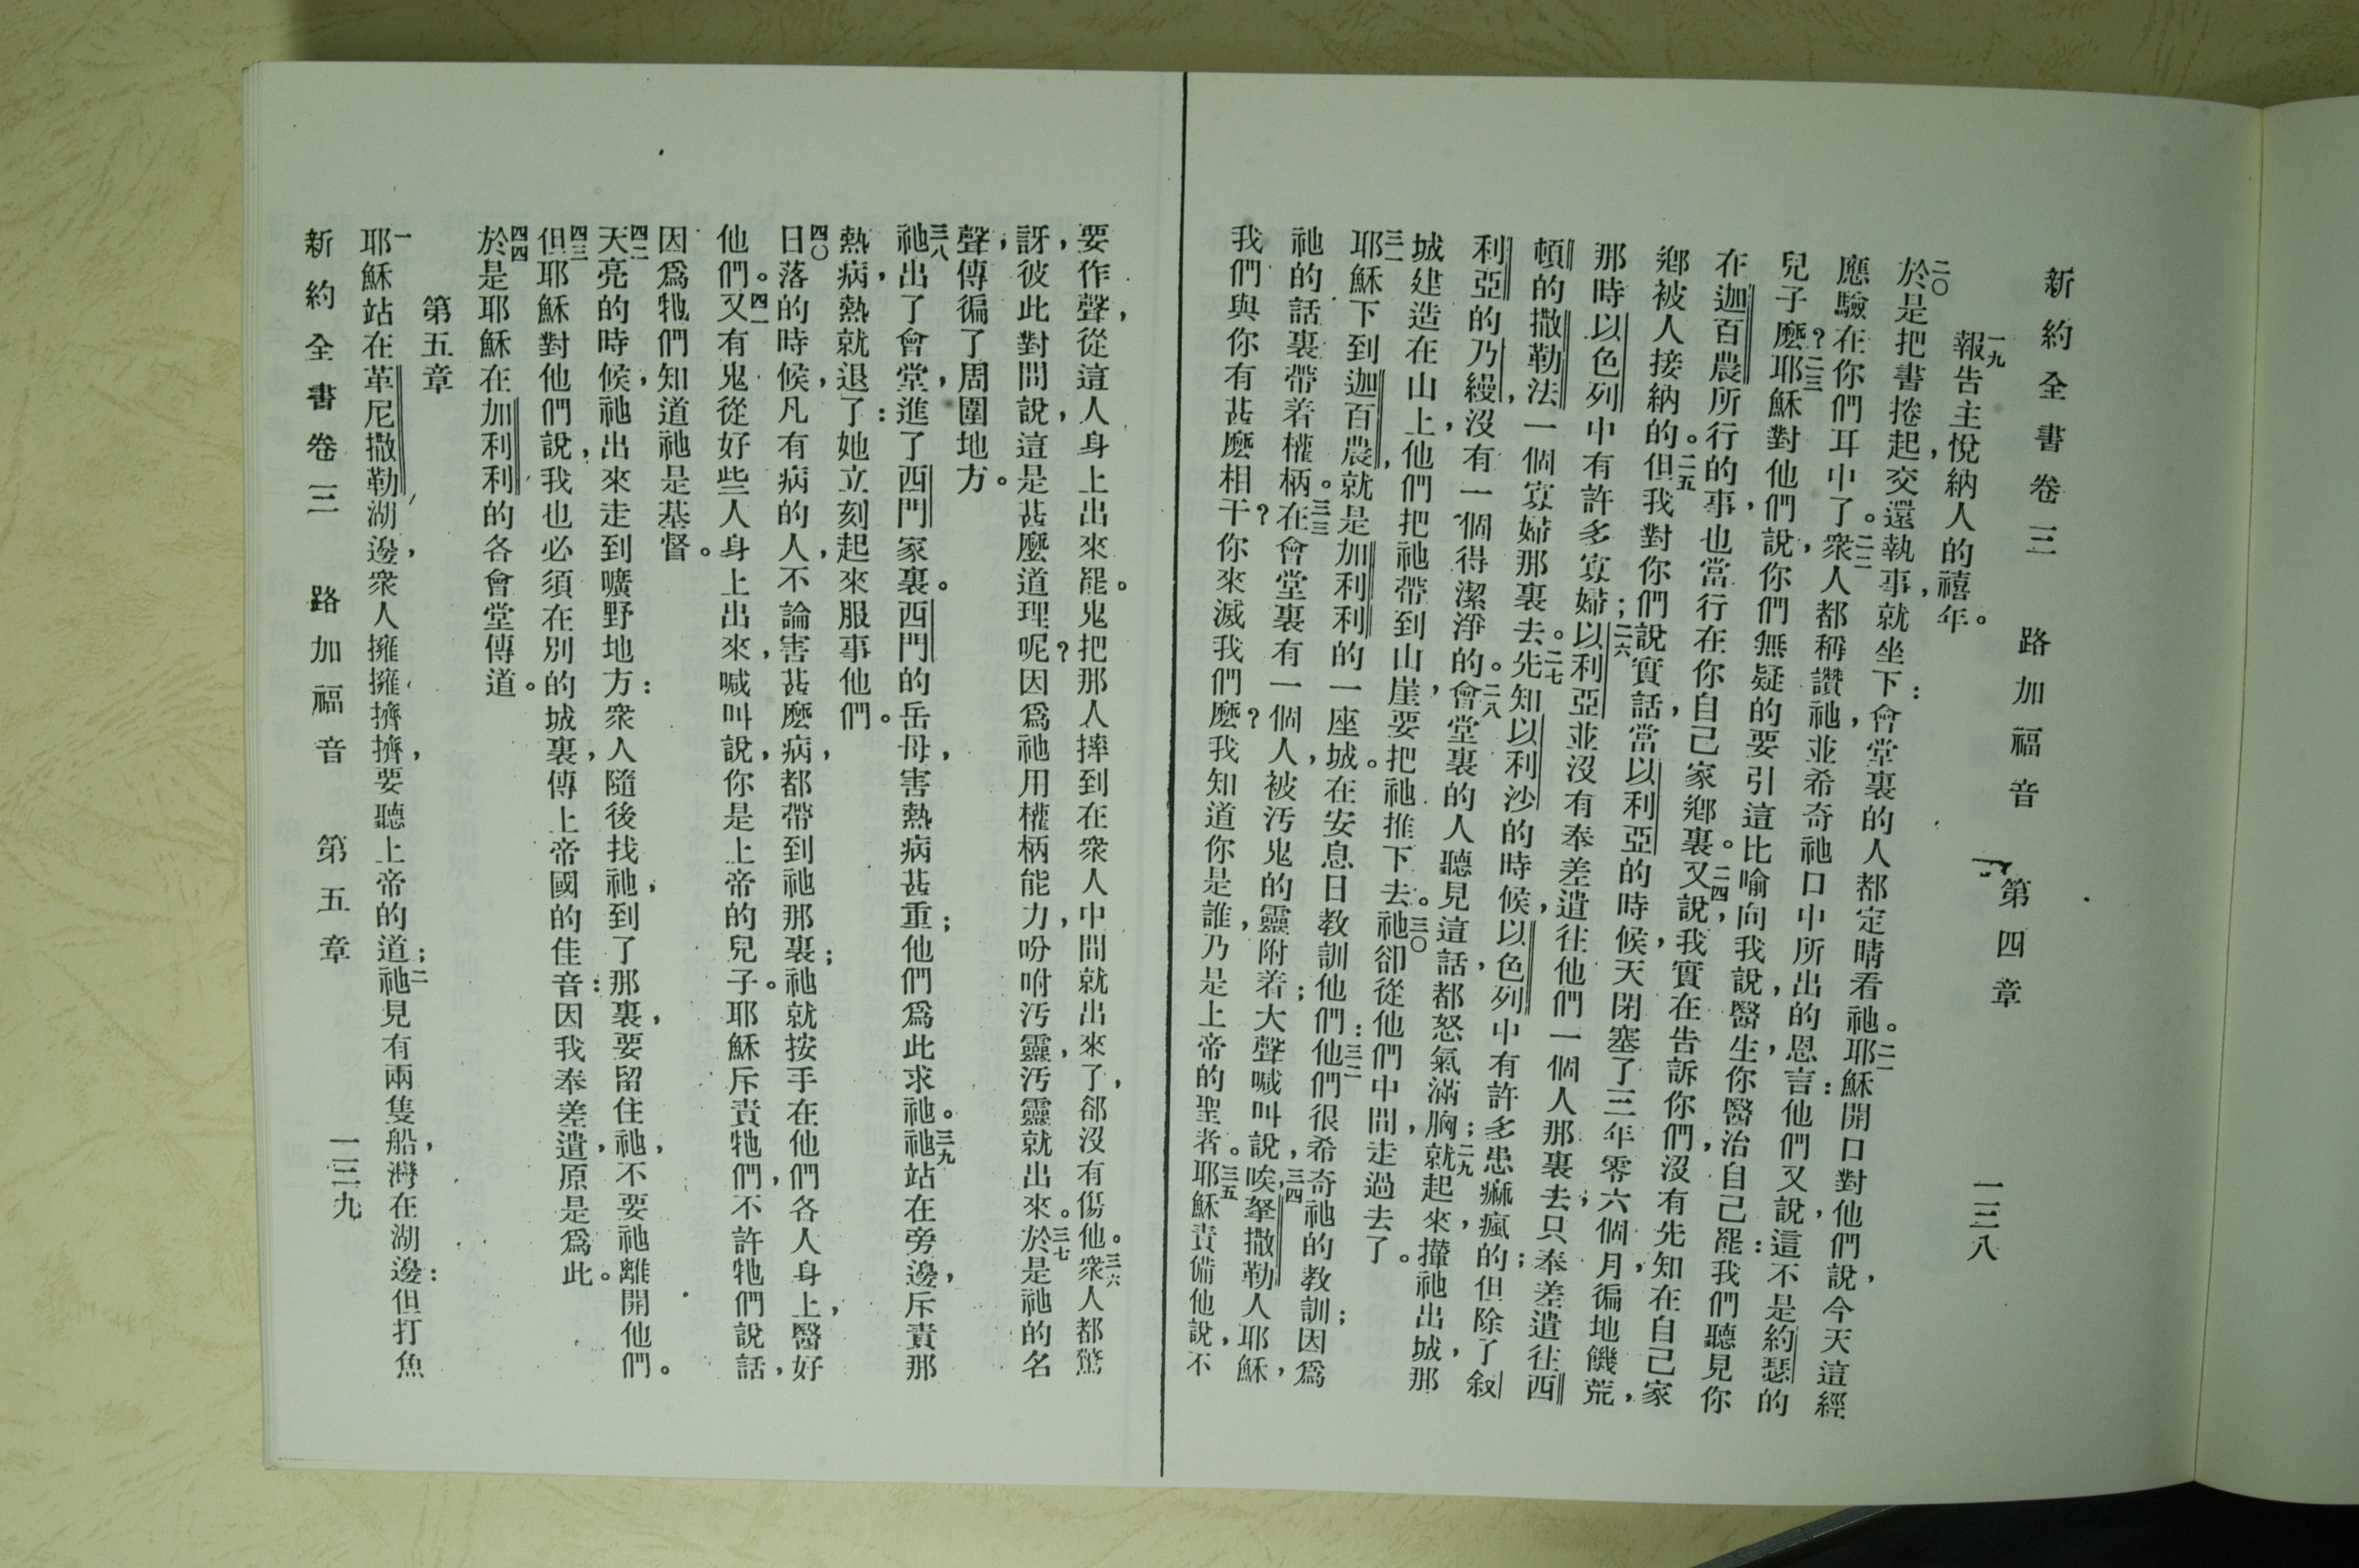 新約全書卷三　路加福音　第四章　一三八
一九報告主悅納人的禧年。
二〇於是把書捲起，交還執事，就坐下：會堂裏的人都定睛看祂。二一耶穌開口對他們說，今天這經
應驗在你們耳中了。二二衆人都稱讚祂，並希奇祂口中所出的恩言：他們又說，這不是約瑟的
兒子麼？二三耶穌對他們說，你們無疑的要引這比喻向我說，醫生，你醫治自己罷：我們聽見你
在迦百農所行的事，也當行在你自己家鄉裏。二四又說，我實在告訴你們，沒有先知在自己家
鄉被人接納的。二五但我對你們說實話，當以利亞的時候，天閉塞了三年零六個月，徧地饑荒，
那時以色列中有許多寡婦；二六以利亞並沒有奉差遣往他們一個人那裏去；只奉差遣往西
頓的撒勒法，一個寡婦那裏去。二七先知以利沙的時候，以色列中有許多患痲瘋的；但除了叙
利亞的乃縵，沒有一個得潔淨的。二八會堂裏的人聽見這話，都怒氣滿胸；二九就起來，攆祂出城，那
城建造在山上，他們把祂帶到山崖，要把祂推下去。三〇祂卻從他們中間，走過去了。
三一耶穌下到迦百農，就是加利利的一座城。在安息日教訓他們：三二他們很希奇祂的教訓；因爲
祂的話裏帶着權柄。三三在會堂裏有一個人，被汚鬼的靈附着；大聲喊叫說，三四唉，拏撒勒人耶穌，
我們與你有甚麼相干？你來滅我們麼？我知道你是誰，乃是上帝的聖者。三五耶穌責備他說，不
要作聲，從這人身上出來罷。鬼把那人摔到在衆人中間就出來了，郤沒有傷他。三六衆人都驚
訝，彼此對問說，這是甚麼道理呢？因爲祂用權柄能力，吩咐汚靈，汚靈就出來。三七於是祂的名
聲，傳徧了周圍地方。
三八祂出了會堂，進了西門家裏。西門的岳母，害熱病甚重；他們爲此求祂。三九祂站在旁邊，斥責那
熱病，熱就退了：她立刻起來服事他們。
四〇日落的時候，凡有病的人，不論害甚麼病，都帶到祂那裏；祂就按手在他們各人身上，醫好
他們。四一又有鬼從好些人身上出來，喊叫說，你是上帝的兒子。耶穌斥責牠們，不許牠們說話，
因爲牠們知道祂是基督。
四二天亮的時候，祂出來走到曠野地方：衆人隨後找祂，到了那裏，要留住祂，不要祂離開他們。
四三但耶穌對他們說，我也必須在別的城裏，傳上帝國的佳音：因我奉差遣，原是爲此。
四四於是耶穌在加利利的各會堂傳道。
第五章
一耶穌站在革尼撒勒湖邊，衆人擁擁擠擠，要聽上帝的道；二祂見有兩隻船，灣在湖邊：但打魚
新約全書卷三　路加福音　第五章　一三九